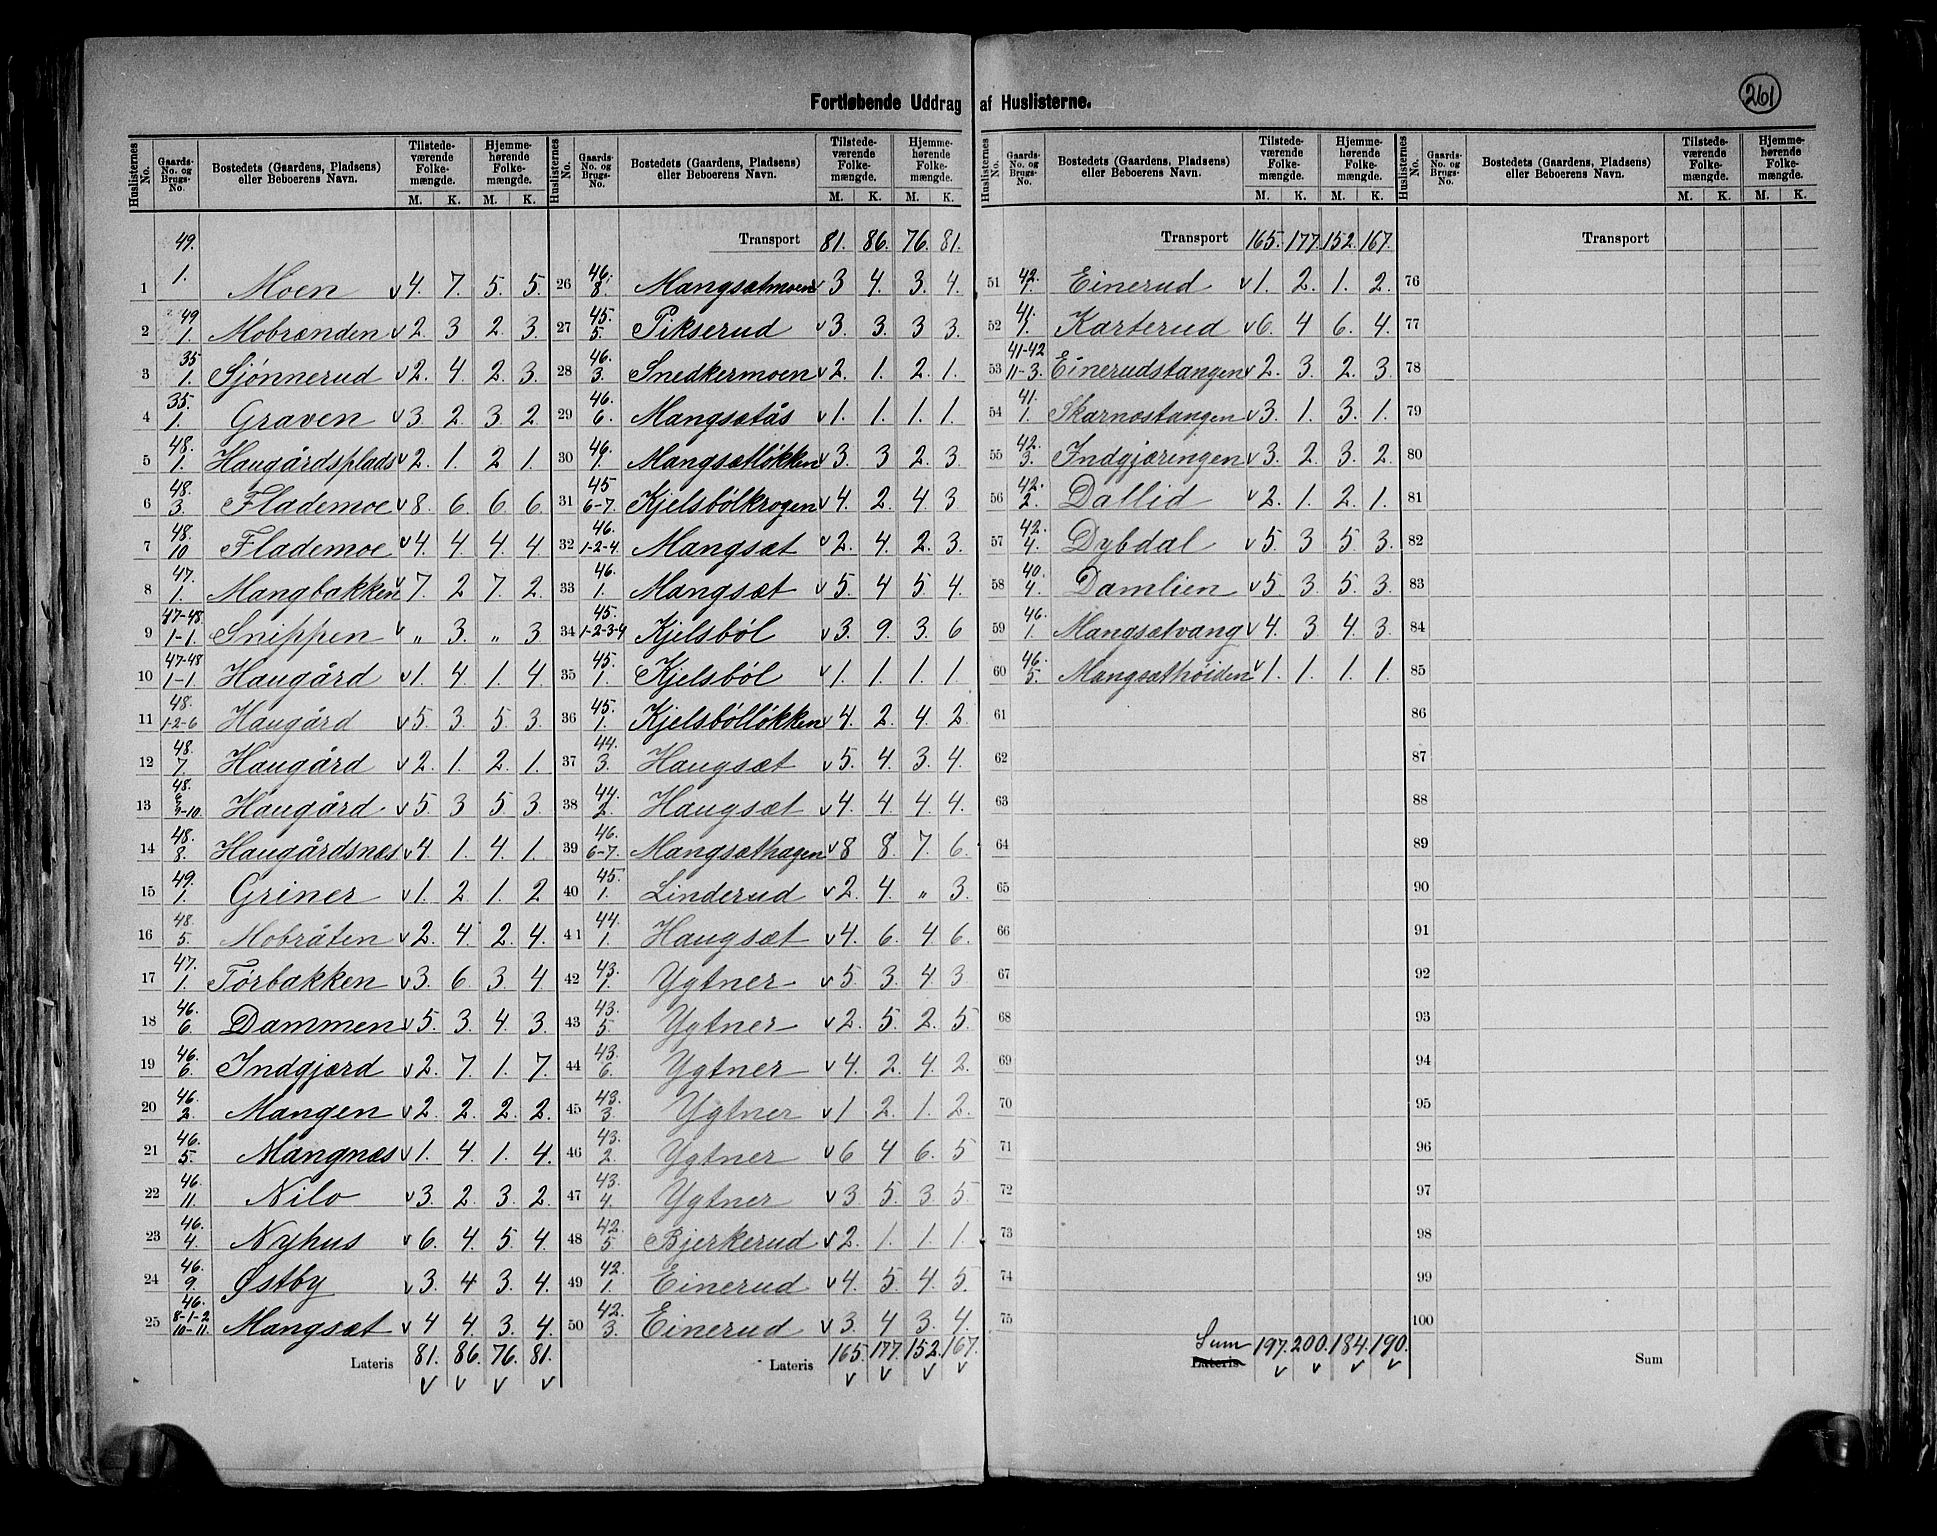 Fortløbende Uddrag af Huslisterne.
261
Huslisternes No. Gaards-No. og Brugs-No. Bostedets (Gaardens, Pladsens) eller Beboerens Navn. Tilstedeværende Folkemængde. Hjemmehørende Folkemængde. M. K. M. K.
49.
1 1. Moen v 4. 7. 5. 5.
2 49 1. Mobrænden v 2. 3 2. 3.
3 35 1. Sjønnerud v 2. 4. 2. 3.
4 35. 1. Graven v 3. 2. 3. 2
5 48. 1. Haugårdsplads v 2. 1. 2 1.
6 48. 3. Flademoe v 8. 6 6. 6.
7 48. 10 Flademoe v 4. 4. 4. 4
8 47. 1. Mangbakken v 7. 2 7. 2.
9 47-48. 1-1. Snippen v „ 3. „ 3
10 47-48 1-1. Haugård v 1. 4 1. 4
11 48. 1-2-6 Haugård v 5. 3. 5. 3.
12 48. 7. Haugård v 2. 1. 2. 1.
13 48. 6 9-10. Haugård v 5. 3 5. 3
14 48. 8. Haugårdsnæs v 4. 1. 4. 1.
15 49. 1. Griner v 1. 2 1. 2
16 48. 5. Mobråten v 2. 4. 2 4.
17 47. 1. Torbakken v 3. 6 3. 4
18 46. 6 Dammen v 5. 3. 4. 3.
19 46. 6. Indgjærd v 2. 7. 1. 7.
20 46. 2. Mangen v 2. 2. 2. 2.
21 46. 5. Mangnæs v 1. 4. 1. 4.
22 46. 11. Nilo v 3. 2. 3. 2.
23 46. 4. Nyhus v 6. 4. 5. 4.
24 46. 9. Østby v 3. 4 3. 4.
25 46. 8-1-2 10-11. Mangsæt v 4 4. 3. 4.
Lateris 81. 86. 76. 81.
v v v v
Huslisternes No. Gaards-No. og Brugs-No. Bostedets (Gaardens, Pladsens) eller Beboerens Navn. Tilstedeværende Folkemængde. Hjemmehørende Folkemængde. M. K. M. K.
Transport 81. 86. 76. 81.
26 46. 8. Mangsætmoen v 3 4. 3. 4.
27 45. 5. Pikserud v 3. 3. 3 3.
28 46. 3. Snedkermoen v 2. 1. 2. 1.
29 46. 6. Mangsætås v 1. 1. 1. 1.
30 46. 1. Mangsætløkken v 3. 3 2. 3.
31 45 6-7. Kjelsbölkrogen v 4. 2 4. 3
32 46. 1-2-4 Mangsæt v 2. 4. 2. 3.
33 46. 1. Mangsæt v 5. 4 5. 4.
34 45. 1-2-3-4 Kjelsböl v 3. 9. 3. 6
35 45. 1. Kjelsböl v 1. 1. 1. 1
36 45. 1. Kjelsbölløkken v 4. 2 4. 2.
37 44. 3. Haugsæt v 5. 4. 3. 4.
38 44. 2. Haugsæt v 4. 4 4. 4.
39 46. 6-7. Mangsæthagen v 8 8. 7. 6.
40 45. 1. Linderud v 2. 4. „ 3.
41 44. 1. Haugsæt v 4. 6. 4 6.
42 43. 1. Ygtner v 5. 3. 4. 3
43 43. 5. Ygtner v 2. 5. 2. 5.
44 43. 6. Ygtner v 4. 2. 4. 2.
45 43. 3. Ygtner v 1 2. 1. 2.
46 43. 2. Ygtner v 6 4 6. 5
47 43. 4. Ygtner v 3 5. 3. 5.
48 42. 5 Bjerkerud v 2. 1. 1. 1.
49 42. 1. Einerud v 4. 5. 4. 5.
50 42. 3. Einerud v 3. 4 3. 4.
Lateris 165. 177. 152. 167.
v v v v
Huslisternes No. Gaards-No. og Brugs-No. Bostedets (Gaardens, Pladsens) eller Beboerens Navn. Tilstedeværende Folkemængde. Hjemmehørende Folkemængde. M. K. M. K.
Transport 165. 177. 152. 167.
51 42. 1. Einerud v 1. 2. 1. 2.
52 41. 1. Karterud v 6. 4 6. 4.
53 41-42 11-3. Einerudstangen v 2. 3. 2. 3.
54 41. 1. Skarnæstangen v 3. 1. 3. 1.
55 42. 3. Indgjæringen v 3. 2. 3. 2.
56 42. 2. Dallid v 2. 1. 2. 1.
57 42. 4. Dybdal v 5. 3 5. 3.
58 40. 4. Damlien v 5. 3. 5. 3.
59 46. 1. Mangsætvang v 4. 3 4. 3.
60 46. 5. Mangsæthöiden v 1. 1. 1. 1.
61
62
63
64
65
66
67
68
69
70
71
72
73
74
75
Sum Lateris 197. 200. 184. 190.
v v v v
Huslisternes No. Gaards-No. og Brugs-No. Bostedets (Gaardens, Pladsens) eller Beboerens Navn. Tilstedeværende Folkemængde. Hjemmehørende Folkemængde. M. K. M. K.
Transport
76
77
78
79
80
81
82
83
84
85
86
87
88
89
90
91
92
93
94
95
96
97
98
99
100
Sum